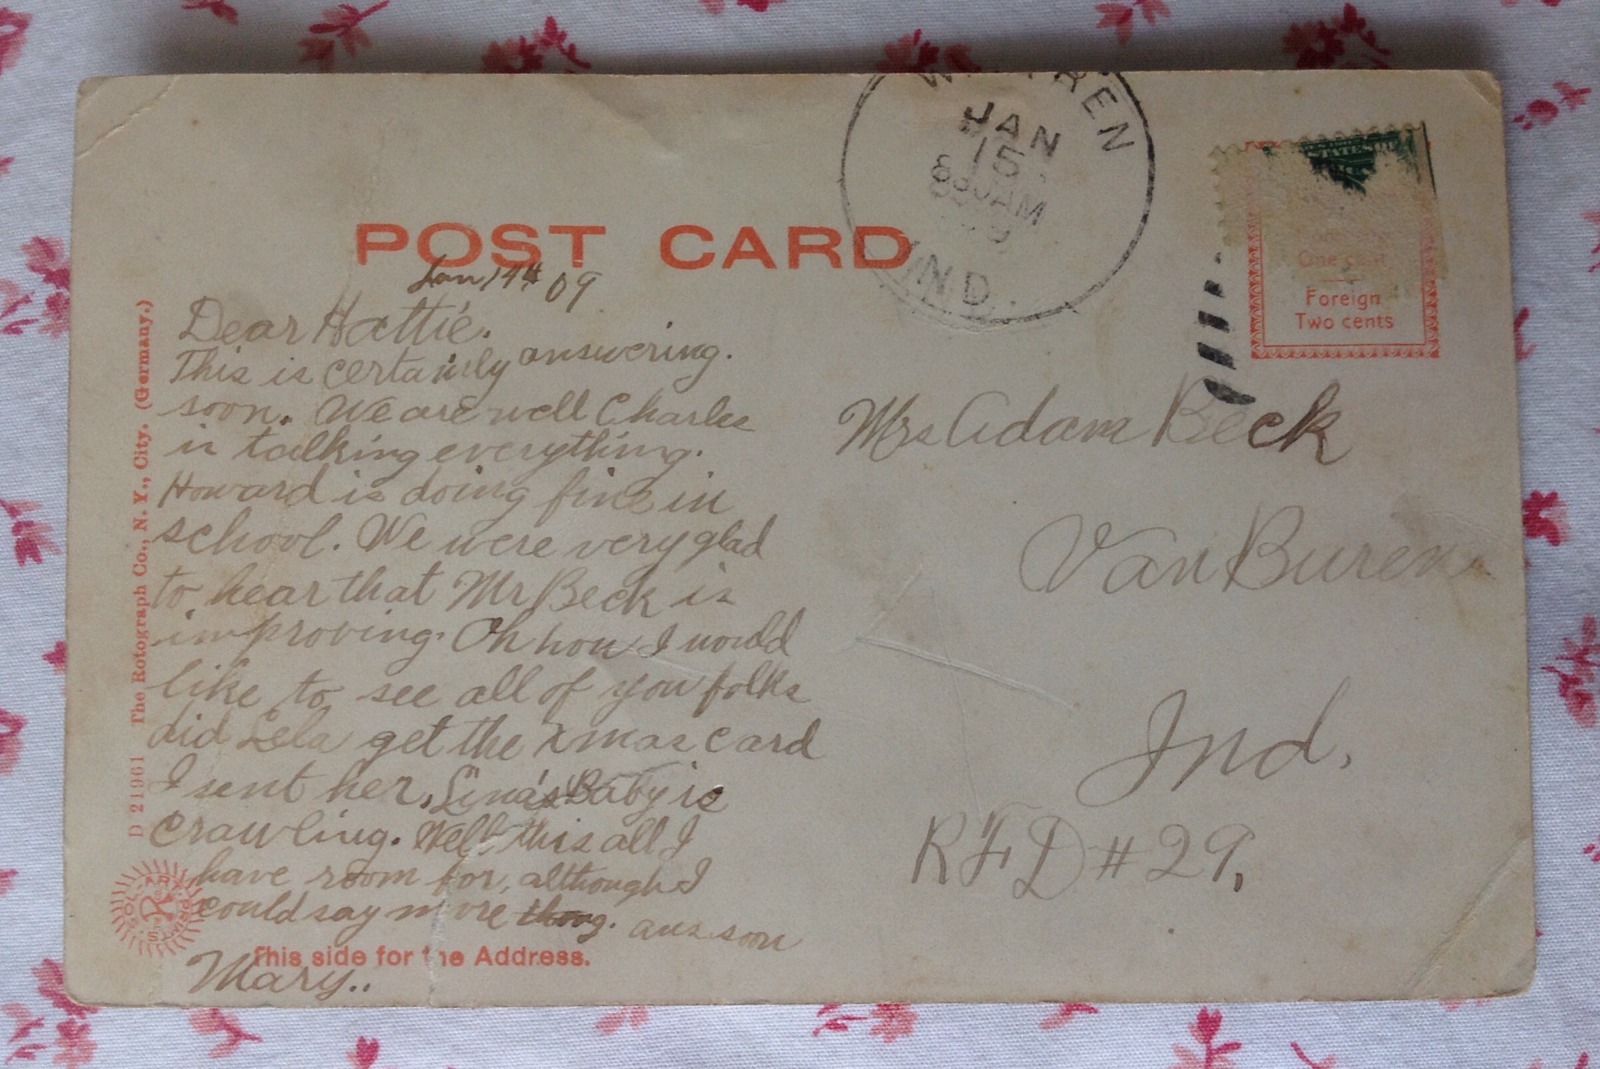 POST CARD
WARREN
JAN
15
830AM
IND.
One cent
Foreign
Two cents
Jan 14th 09
Dear Hattie.
This is certainly answering.
soon. We are well Charles
is talking everything.
Howard is doing fine in
school. We were very glad
to hear that Mr Beck is
improving. Oh how I would
like to see all of you folks
did Lela get the Xmas card
I sent her. Lina's Baby is
crawling. Well this all I
have room for, although I
could say more thong. ans soon
Mary..
This side for the Address.
Mrs Adam Beck
Van Buren
Ind.
RFD # 29.
D 21961 The Rotograph Co., N. Y., City. (Germany.)